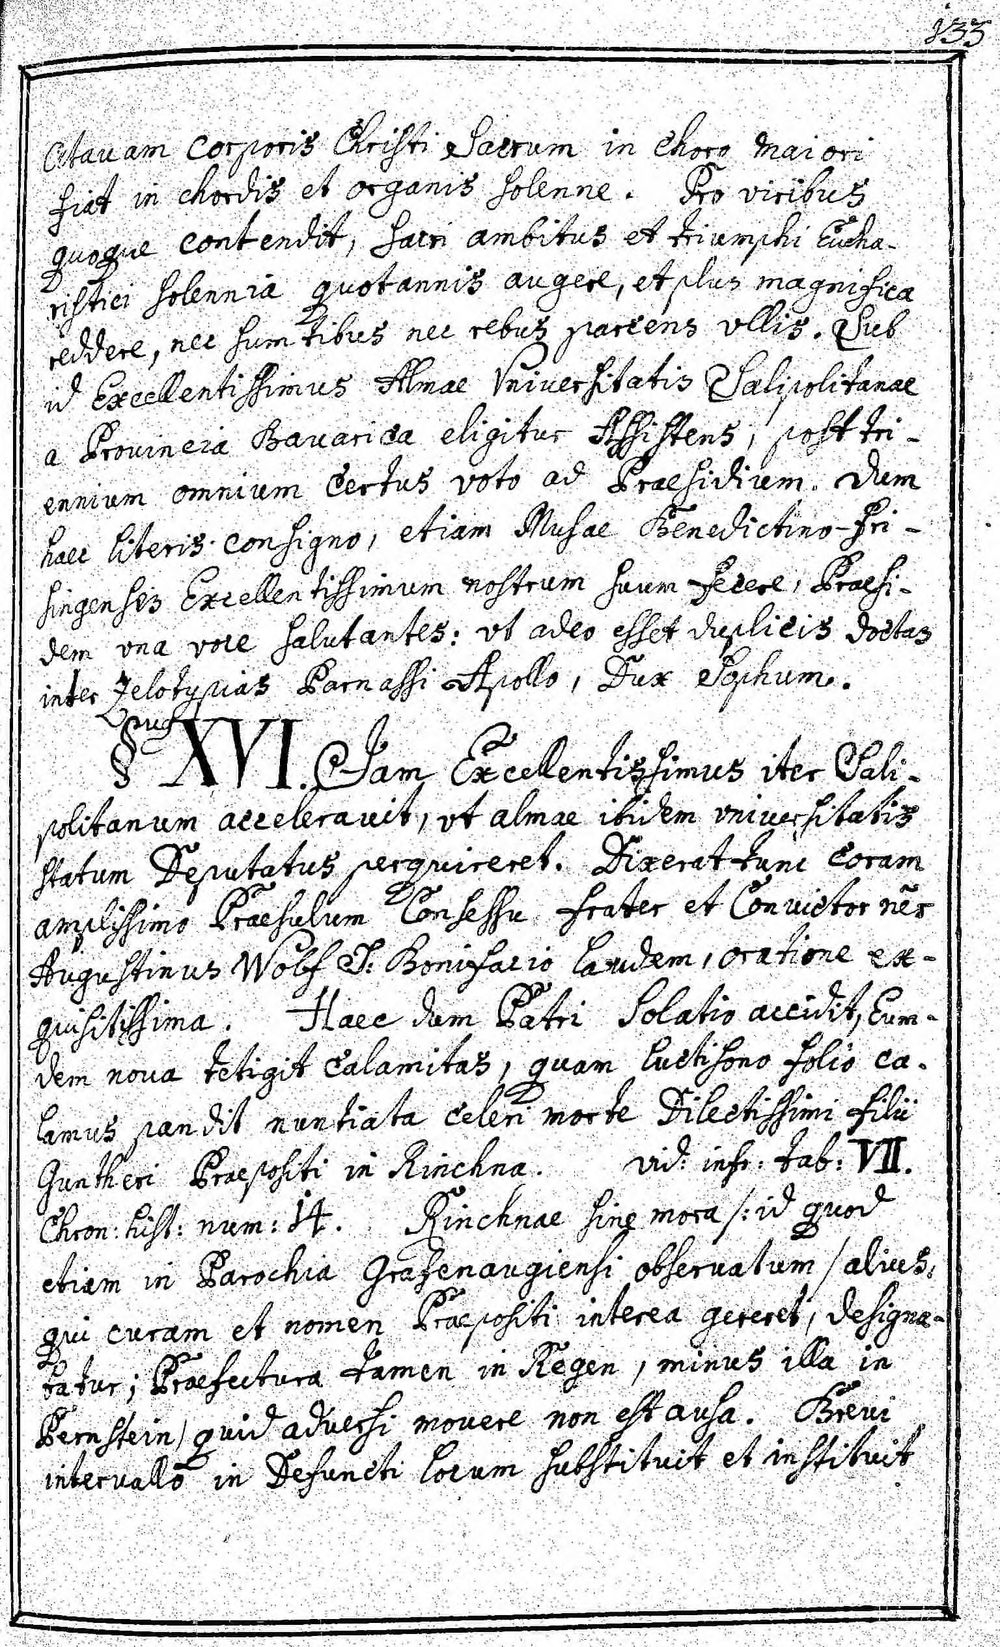 133
Octauam Corporis Christi Sacrum in Choro maiori
fiat in chordis et organis solenne. Pro viribus
quoque contendit, sacri ambitus et triumphi Eucha-
ristici solennia quotannis augere, et plus magnifica
reddere, nec sumtibus nec rebus parcens vllis. Sub
id Excellentissimus Almae Vniversitatis Salipolitanae
a Prouincia Bauarica eligitur Assistens, post tri-
ennium omnium Certus voto ad Praesidium. Dum
haec literis consigno, etiam Musae Benedictino-Fri-
singenses Excellentissimum nostrum suum fecere, Praesi-
dem vna voce salutantes: vt adeo esset duplicis doctas
inter Zelotypias Parnassi Apollo, Dux Sophum.
§pus XVI. Jam Excellentissimus iter Sali-
politanum accelerauit, vt almae ibidem vniuersitatis
statum Deputatus perquireret. Dixerat tunc coram
amplissimo Praesulum Consessu frater et Convictor nēr
Augustinus Wolf S: Bonifacio laudem, oratione ex-
quisitissima. Haec dum Patri Solatio accidit, Eum-
dem noua tetigit calamitas, quam luctisono folio ca-
lamus pandit nuntiata celeri morte Dilectissimi filii
Guntheri Praepositi in Rinchna. vid: infr: tab: VII.
Chron: hist: num: 14. Rinchnae sine mora /: id quod
etiam in Parochia Grafenaugiensi obseruatum / alius,
qui curam et nomen Praepositi interea gereret, designa-
tatur; Praefectura tamen in Regen, minus illa in
Pernstein / quid adversi mouere non est ausa. Breui
interuallo in Defuncti locum substituit et instituit